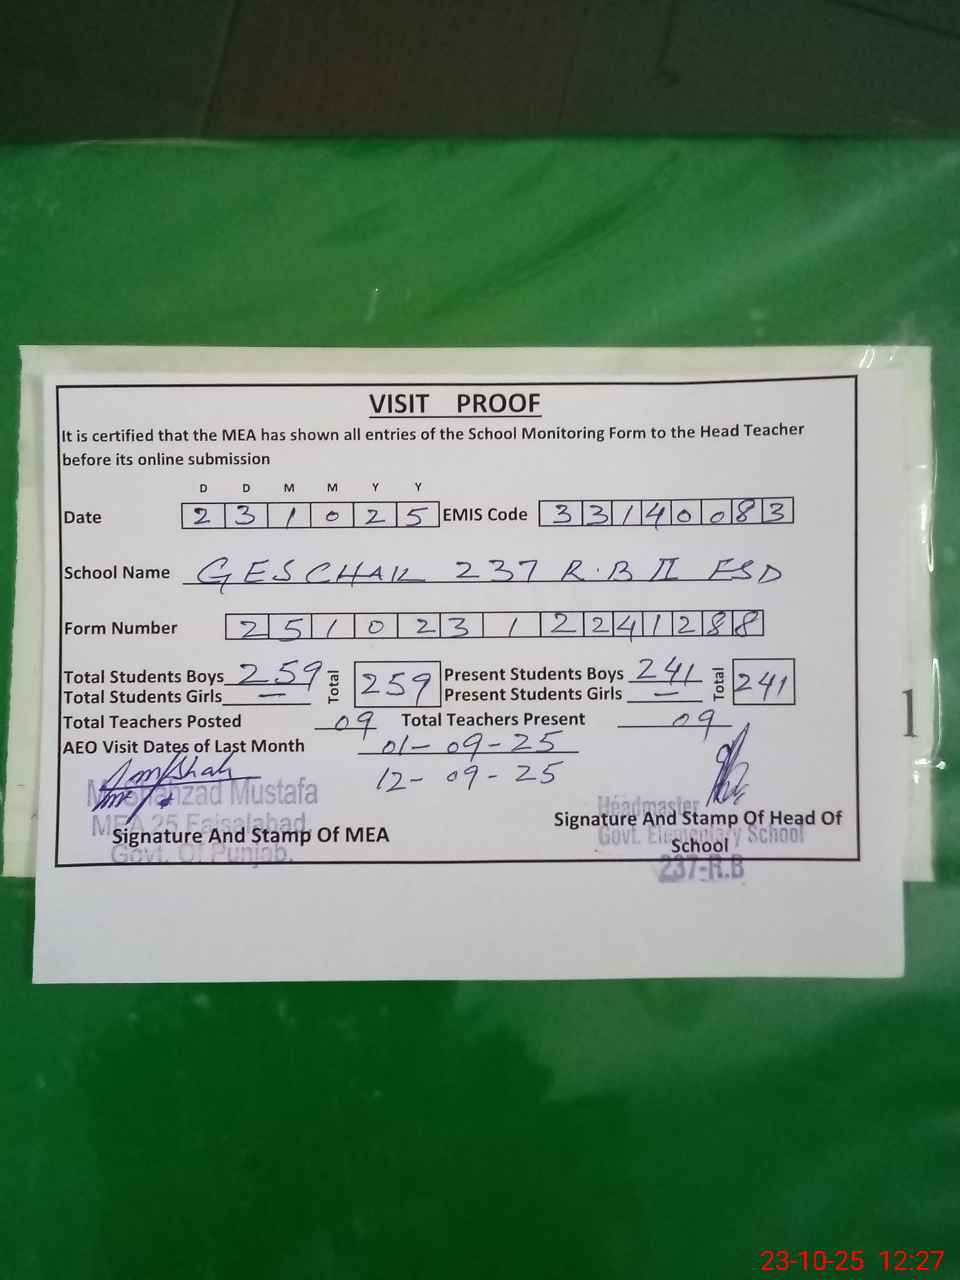 VISIT PROOF
It is certified that the MEA has shown all entries of the School Monitoring Form to the Head Teacher
before its online submission
D D M M Y Y
Date 2 3 1 0 2 5 EMIS Code 3 3 1 4 0 0 8 3
School Name GES CHAK 237 R.B II FSD
Form Number 2 5 1 0 2 3 1 2 2 4 1 2 8 8
Total Students Boys 259 Total 259 Present Students Boys 241 Total 241
Total Students Girls — Present Students Girls —
Total Teachers Posted 09 Total Teachers Present 09
AEO Visit Dates of Last Month 01-09-25
12-09-25
Shahzad Mustafa
MEA 25 Faisalabad
Govt. Of Punjab.
Signature And Stamp Of MEA
Headmaster
Govt. Elementary School
237-R.B
Signature And Stamp Of Head Of
School
1
23-10-25 12:27